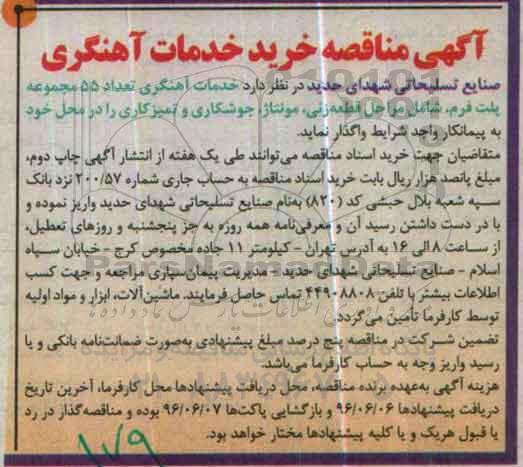 آگهی مناقصه خرید خدمات آهنگری
صنایع تسلیحاتی شهدای حدید در نظر دارد خدمات آهنگری تعداد ۵۵ مجموعه
پلت فرم، شامل مراحل قطعه‌زنی، مونتاژ، جوشکاری و تمیزکاری را در محل خود
به پیمانکار واجد شرایط واگذار نماید.
متقاضیان جهت خرید اسناد مناقصه می‌توانند طی یک هفته از انتشار آگهی چاپ دوم،
مبلغ پانصد هزار ریال بابت خرید اسناد مناقصه به حساب جاری شماره ۲۰۰/۵۷ نزد بانک
سپه شعبه بلال حبشی کد (۸۲۰) به‌نام صنایع تسلیحاتی شهدای حدید واریز نموده و
با در دست داشتن رسید آن و معرفی‌نامه همه روزه به جز پنجشنبه و روزهای تعطیل،
از ساعت ۸ الی ۱۶ به آدرس تهران - کیلومتر ۱۱ جاده مخصوص کرج - خیابان سپاه
اسلام - صنایع تسلیحاتی شهدای حدید - مدیریت پیمان‌سپاری مراجعه و جهت کسب
اطلاعات بیشتر با تلفن ۴۴۹۰۸۸۰۸ تماس حاصل فرمایند. ماشین‌آلات، ابزار و مواد اولیه
توسط کارفرما تأمین می‌گردد.
تضمین شرکت در مناقصه پنج درصد مبلغ پیشنهادی به‌صورت ضمانت‌نامه بانکی و یا
رسید واریز وجه به حساب کارفرما می‌باشد.
هزینه آگهی به‌عهده برنده مناقصه، محل دریافت پیشنهادها محل کارفرما، آخرین تاریخ
دریافت پیشنهادها ۹۶/۰۶/۰۶ و بازگشایی پاکت‌ها ۹۶/۰۶/۰۷ بوده و مناقصه‌گذار در رد
یا قبول هریک و یا کلیه پیشنهادها مختار خواهد بود.
۱۷۹